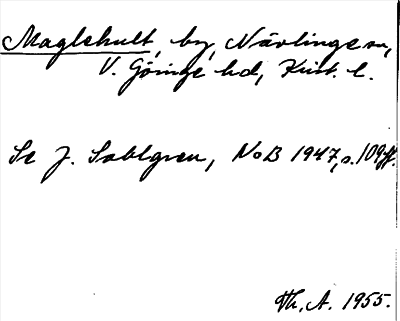 Maglehult, by, Nävlinge sn,
V. Göinge hd, Krist. l.
Se J. Sahlgren, NoB 1947, s. 109 ff.
Th. A. 1955.